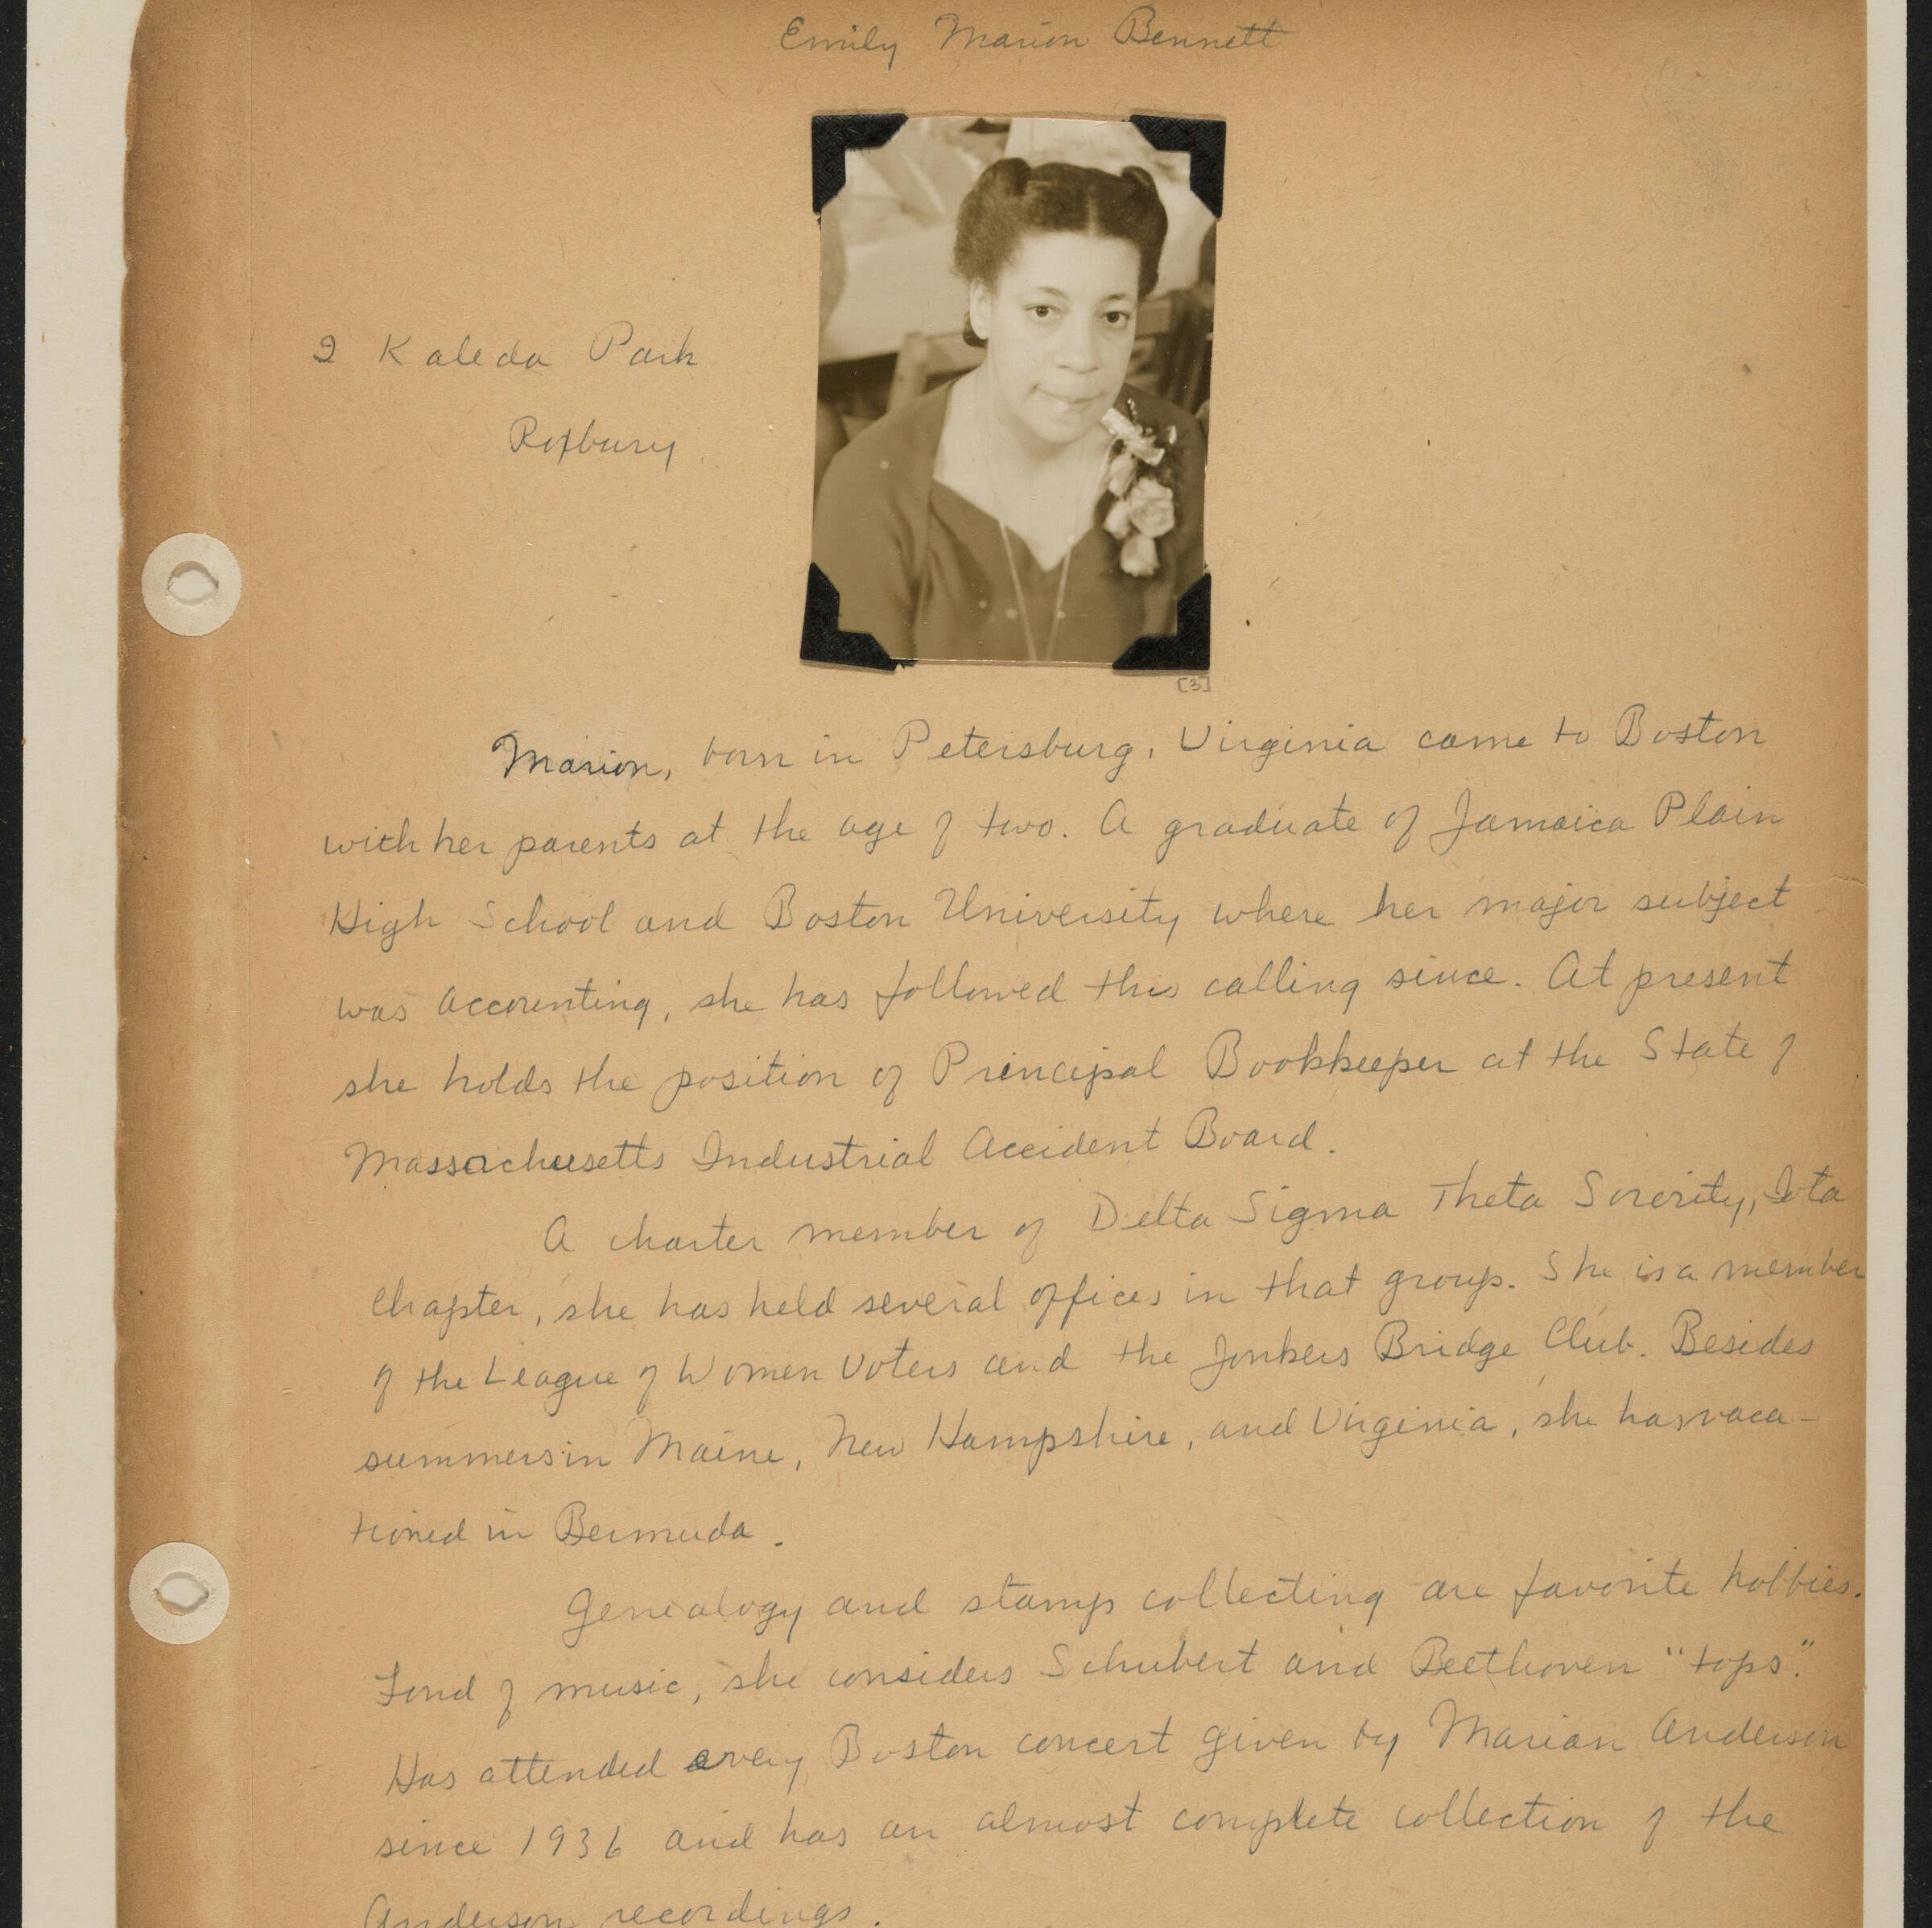 Emily Marion Bennett
2 Kaleda Park
Roxbury
[3]
Marion, born in Petersburg, Virginia came to Boston
with her parents at the age of two. A graduate of Jamaica Plain
High School and Boston University where her major subject
was accounting, she has followed this calling since. At present
she holds the position of Principal Bookkeeper at the State of
Massachusetts Industrial Accident Board.
A charter member of Delta Sigma Theta Sorority, Iota
Chapter, she has held several offices in that group. She is a member
of the League of Women Voters and the Jonkers Bridge Club. Besides
summers in Maine, New Hampshire, and Virginia, she has vaca-
tioned in Bermuda.
Genealogy and stamp collecting are favorite hobbies.
Fond of music, she considers Schubert and Beethoven "tops."
Has attended every Boston concert given by Marian Anderson
since 1936 and has an almost complete collection of the
Anderson recordings.